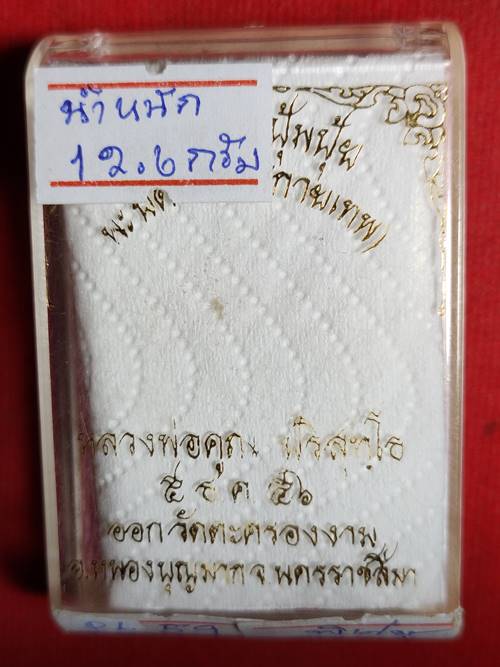 น้ำหนัก
12.6 กรัม
ปุ้มปุ้ย
กายเทพ)
หลวงพ่อคูณ ปริสุทฺโธ
๕ ธ ค ๕๖
ออกวัดตะครองงาม
อ.หนองบุญมาก จ.นครราชสีมา